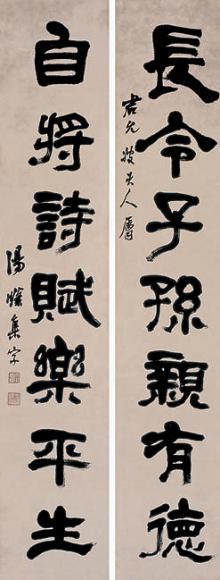 長令子孫親有德
君允姒夫人屬
自將詩賦樂平生
湯燦集字